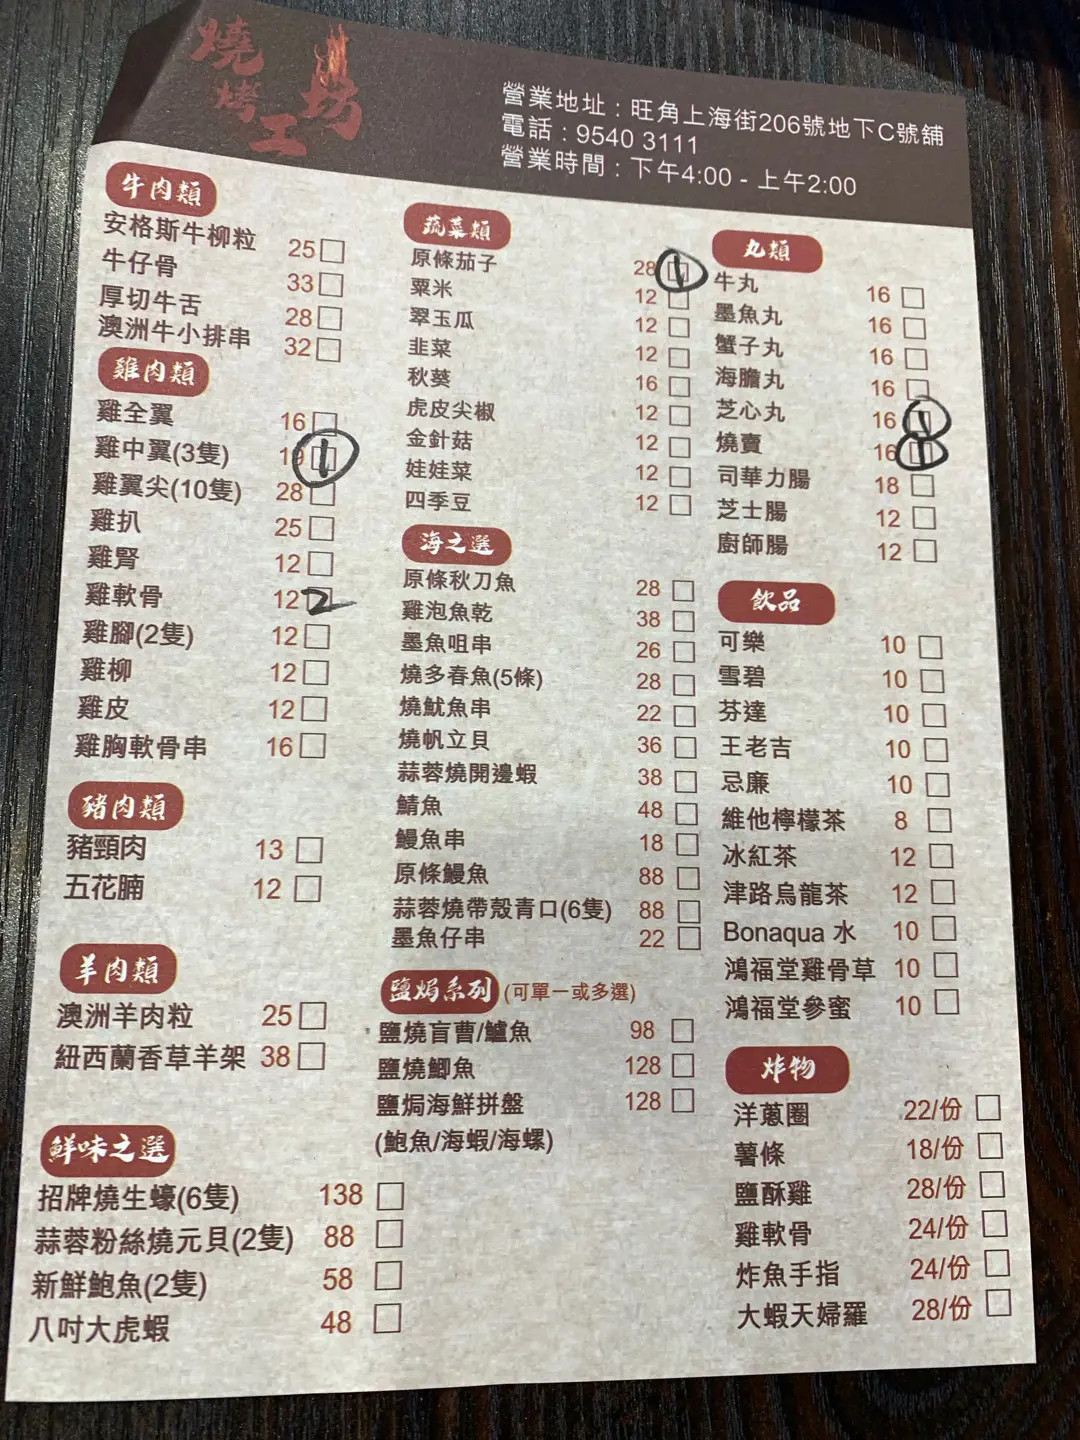 燒烤工坊
營業地址：旺角上海街206號地下C號舖
電話：9540 3111
營業時間：下午4:00 - 上午2:00
牛肉類
安格斯牛柳粒 25
牛仔骨 33
厚切牛舌 28
澳洲牛小排串 32
雞肉類
雞全翼 16
雞中翼(3隻) 19 1
雞翼尖(10隻) 28
雞扒 25
雞腎 12
雞軟骨 12 2
雞腳(2隻) 12
雞柳 12
雞皮 12
雞胸軟骨串 16
豬肉類
豬頸肉 13
五花腩 12
羊肉類
澳洲羊肉粒 25
紐西蘭香草羊架 38
鮮味之選
招牌燒生蠔(6隻) 138
蒜蓉粉絲燒元貝(2隻) 88
新鮮鮑魚(2隻) 58
八吋大虎蝦 48
蔬菜類
原條茄子 28 1
粟米 12
翠玉瓜 12
韭菜 12
秋葵 16
虎皮尖椒 12
金針菇 12
娃娃菜 12
四季豆 12
海之選
原條秋刀魚 28
雞泡魚乾 38
墨魚咀串 26
燒多春魚(5條) 28
燒魷魚串 22
燒帆立貝 36
蒜蓉燒開邊蝦 38
鯖魚 48
鰻魚串 18
原條鰻魚 88
蒜蓉燒帶殼青口(6隻) 88
墨魚仔串 22
鹽焗系列 (可單一或多選)
鹽燒盲曹/鱸魚 98
鹽燒鯽魚 128
鹽焗海鮮拼盤 128
(鮑魚/海蝦/海螺)
丸類
牛丸 16
墨魚丸 16
蟹子丸 16
海膽丸 16
芝心丸 16 1
燒賣 16 1
司華力腸 18
芝士腸 12
廚師腸 12
飲品
可樂 10
雪碧 10
芬達 10
王老吉 10
忌廉 10
維他檸檬茶 8
冰紅茶 12
津路烏龍茶 12
Bonaqua 水 10
鴻福堂雞骨草 10
鴻福堂參蜜 10
炸物
洋蔥圈 22/份
薯條 18/份
鹽酥雞 28/份
雞軟骨 24/份
炸魚手指 24/份
大蝦天婦羅 28/份